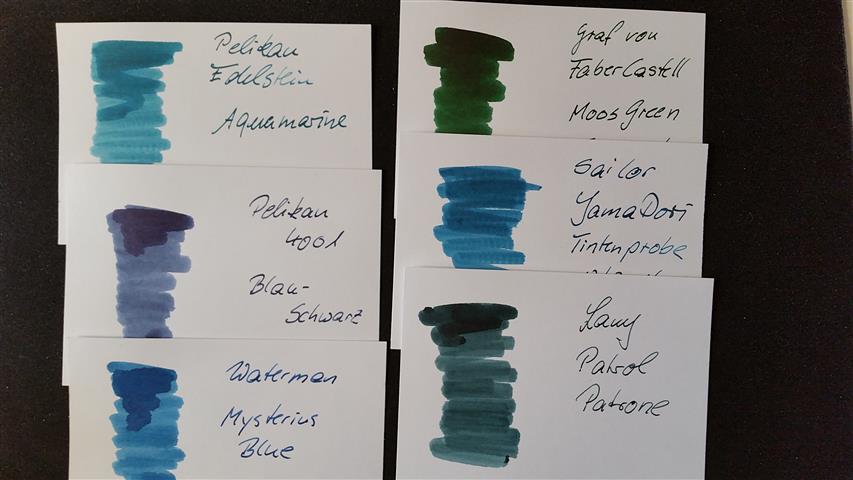 Pelikan
Edelstein
Aquamarine
Pelikan
4001
Blau-
Schwarz
Waterman
Mysterius
Blue
Graf von
FaberCastell
Moos Green
Sailor
YamaDori
Tintenprobe
Lamy
Patrol
Patrone